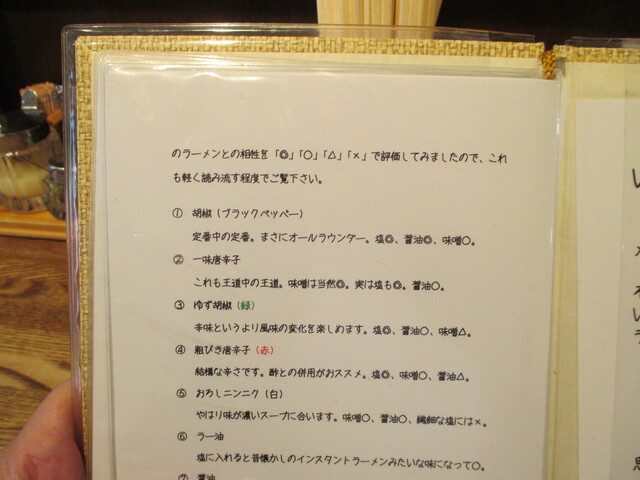 のラーメンとの相性を「◎」「○」「△」「×」で評価してみましたので、これ
も軽く読み流す程度でご覧下さい。
① 胡椒（ブラックペッパー）
定番中の定番。まさにオールラウンダー。塩◎、醤油◎、味噌○。
② 一味唐辛子
これも王道中の王道。味噌は当然◎。実は塩も◎。醤油○。
③ ゆず胡椒（緑）
辛味というより風味の変化を楽しめます。塩◎、醤油○、味噌△。
④ 粗びき唐辛子（赤）
結構な辛さです。酢との併用がおススメ。塩◎、味噌○、醤油△。
⑤ おろしニンニク（白）
やはり味が濃いスープに合います。味噌○、醤油○、繊細な塩には×。
⑥ ラー油
塩に入れると昔懐かしのインスタントラーメンみたいな味になって○。
⑦ 醤油